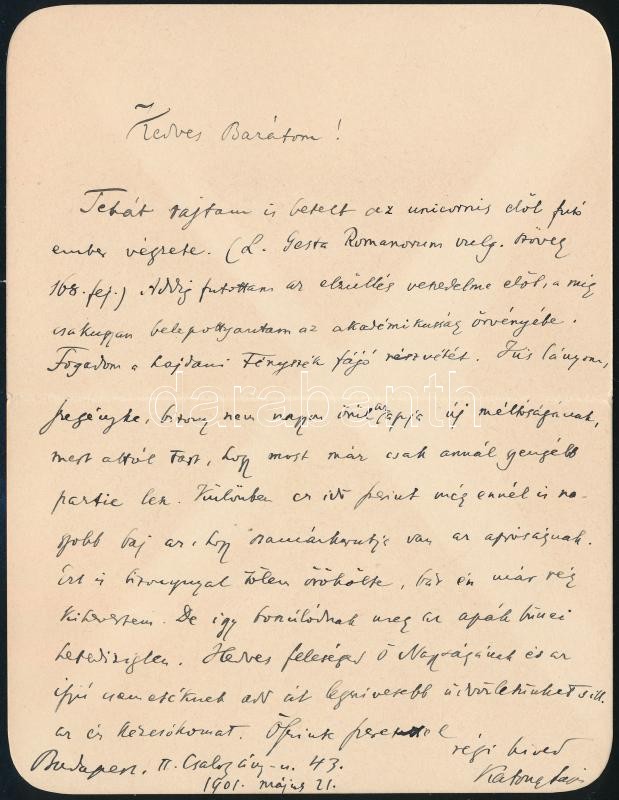 Kedves Barátom!
Tehát rajtam is betelt az unicornis elől futó
ember végzete. (L. Gesta Romanorum vulg. szöveg
168. fej.) Addig futottam az elzüllés veszedelme elől, a míg
csakugyan belepottyantam az akadémikusság örvényébe.
Fogadom a hajdani Fényszék fájó részvétét. Kis lányom,
szegényke, bizony nem nagyon örül az apja új méltóságának,
mert attól tart, hogy most már csak annál gyengébb
partie lesz. Különben ez idő szerint még ennél is na-
gyobb baj az, hogy szamárhurutja van az apróságnak.
Ezt is bizonynyal tőlem örökölte, bár én már rég
kihevertem. De így bosszúlódnak meg az apák bűnei
hetedíziglen. Kedves feleséged ő Nagyságának és az
ifjú nemzetéknek add át legszívesebb üdvözletünket s ill.
az én kézcsókomat. Őszinte szeretettel
régi híved
Katona Lajos
Budapest, II. Csalogány-u. 43.
1901. május 21.
darabanth